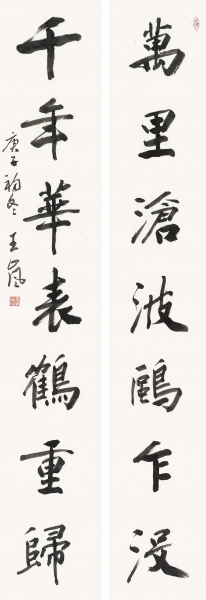 萬里滄波鷗乍沒
千年華表鶴重歸
庚子初冬 王嵐